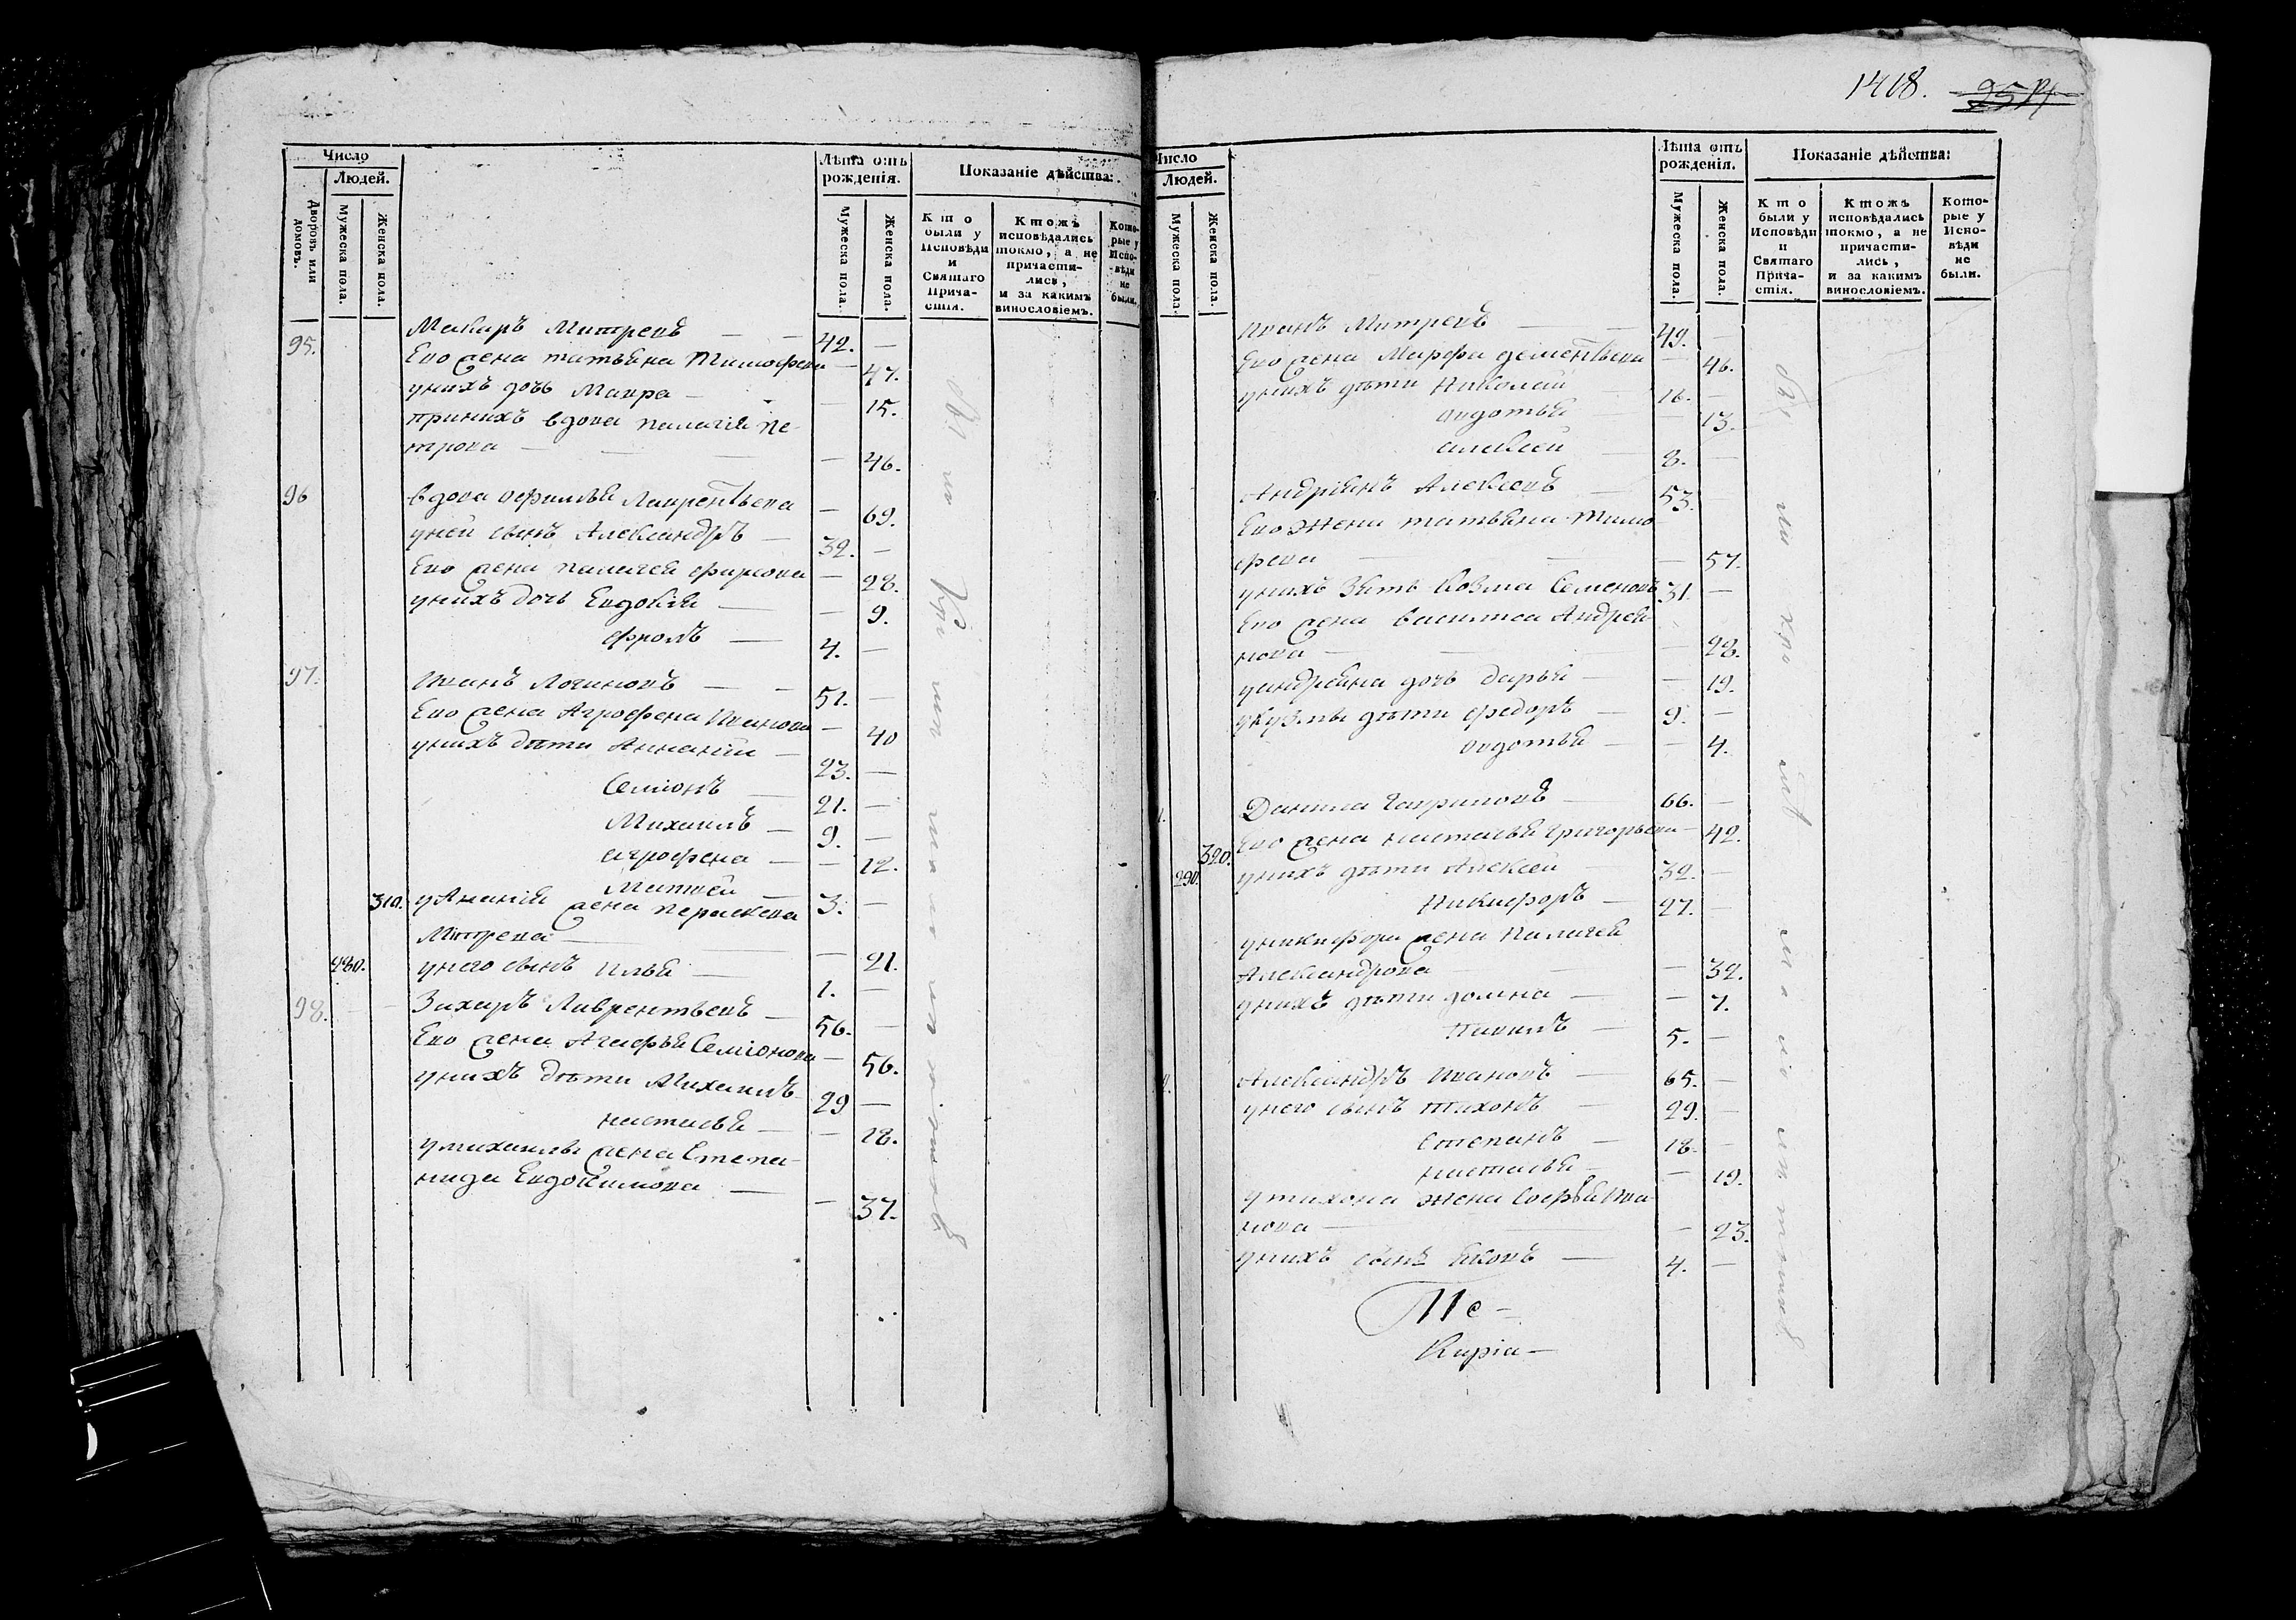 Число
Людей.
Дворовъ или домовъ.
Мужеска пола.
Женска пола.
Лѣта отъ рожденія.
Мужеска пола.
Женска пола.
Показаніе дѣйства:
Кто были у Исповѣди и Святаго Прича-стія.
Ктожъ исповѣдались токмо, а не причасти-лись, и за какимъ винословіемъ.
Кото-рые у Испо-вѣди не были.
95. Макаръ Митревъ — 42. —
Его жена татьяна Тимофева — 47.
унихъ дочь Мавра — — 15.
принихъ вдова палагія Пе-
трова — — 46.
96 вдова офимья Лаврентьева — 69.
уней сынъ Александръ — 32. —
Его жена палагея фирсова — 28.
унихъ дочь Евдокия — — 9.
фролъ — 4. —
97. Иванъ Логиновъ — 51. —
Его жена Агрофена Иванова — 40
унихъ дѣти Ананій — 23. —
Семионъ — 21. —
Михаилъ — 9. —
агрофена — — 12.
Матвей — 3. —
310. уАнанія жена Пераскева
Митрева — — 21.
280. унего сынъ илья — 1. —
98. Захаръ Лаврентьевъ — 56. —
Его жена Агафья Семионова — 56.
унихъ дѣти Михаилъ 29 —
настасья — — 18.
умихаилы жена Степа-
нида Евдокимова — — 37.
1418. 
Число
Людей.
Мужеска пола.
Женска пола.
Лѣта отъ рожденія.
Мужеска пола.
Женска пола.
Показаніе дѣйства:
Кто были у Исповѣди и Святаго Прича-стія.
Ктожъ исповѣдались токмо, а не причасти-лись, и за какимъ винословіемъ.
Кото-рые у Испо-вѣди не были.
иванъ Митревъ — 49. —
Его жена Марфа дементьева — 46.
унихъ дѣти Николай 16. —
авдотья — 13.
алексей — 8. —
Андриянъ Алексеевъ — 53. —
Его жена татьяна Тимо
фева — — 57.
унихъ зять Козма Семеновъ 31. —
Его жена василиса Андрея-
нова — — 28.
уандреяна дочь дарья — — 19.
укузмы дѣти федоръ — 9. —
авдотья — — 4.
Данила Гавриловъ — 66. —
Его жена настасья григорьева — 42.
320.
290. унихъ дѣти Алексей — 32. —
Никифоръ — 27. —
уникифора жена Палагея
Александрова — — 32.
унихъ дѣти домна — — 7.
5. —
Александръ Ивановъ — 65. —
унего сынъ тихонъ — 29. —
Степанъ — 18. —
настасья — — 19.
утихона жена Софья Ива
нова — — 23.
унихъ сынъ Яковъ — 4. —